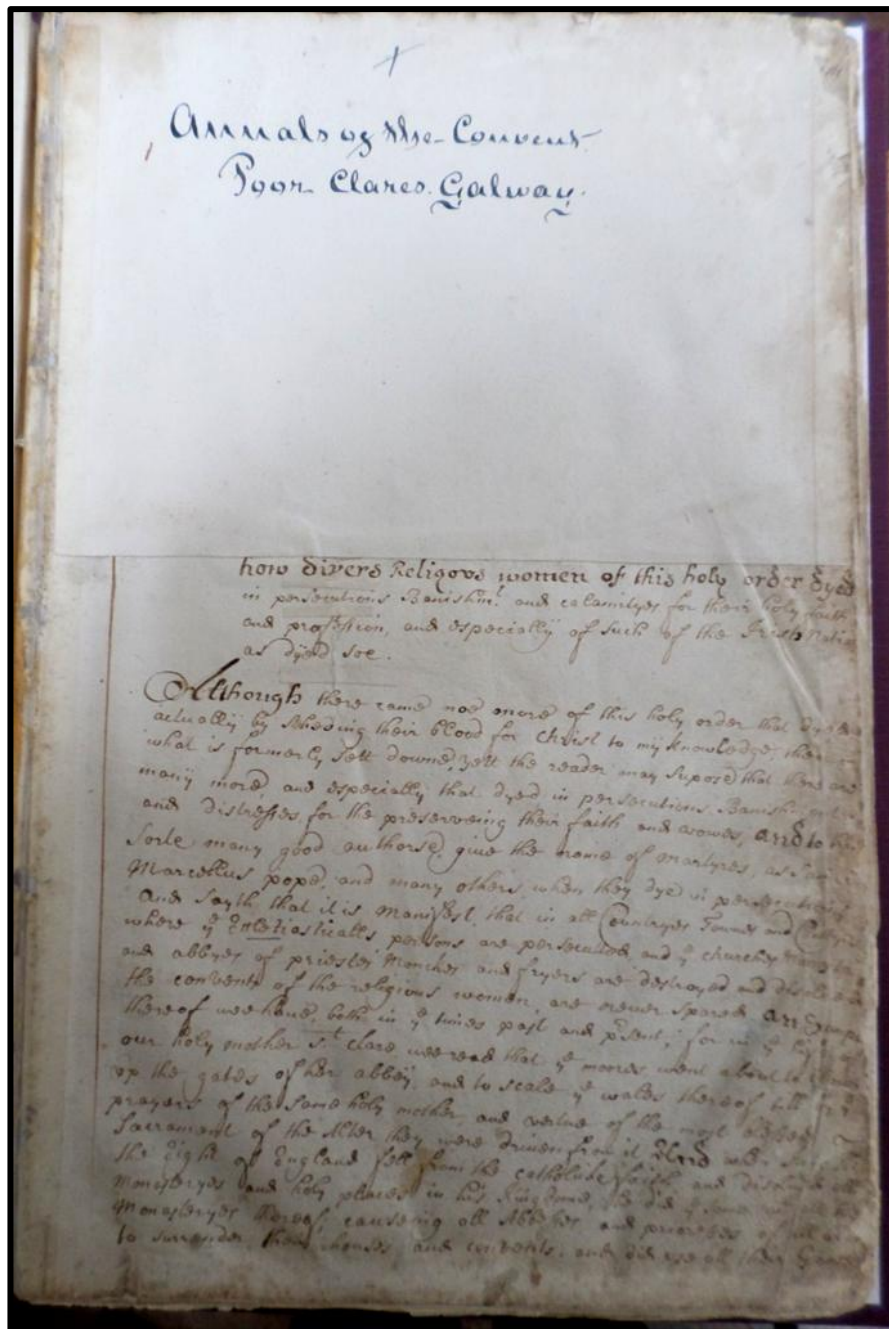 Annals of the Convent
Poor Clares. Galway.
how divers Religovs women of this holy order dyed
in persecutions Banishmt. and calamityes for their holy faith
and profession, and especially of such of the Irish Natio
as dyed soe.
Although there came noe more of this holy order that dyed
actually by sheding their blood for Christ to my knowledge, then
what is formerly sett downe, yett the reader may supose that there are
many more, and especially that dyed in persecutions Banishm
and distresses, for the preserveing their faith and vowes, and to this
sorte many good authorse, give the name of martyres, as
Marcellus pope, and many others, when they dye in persecutions
And sayth that it is manifest, that in all Countryes Townes and
where ye Eclesiasticalls, persons are persecuted, and ye churches
and abbyes of priestes Monches and fryers are destroyed and
the convents of the religious women, are never spared. an
thereof wee have, both in ye times past and present; for in ye
our holy mother St. Clare, wee read that ye moores went about to
op the gates of her abbey, and to scale ye wales thereof till
prayers of the same holy mother, and vertue of the most blessed
Sacrament of the Alter they were driven from it And when
the Eight of England fell from the catholicke faith and
monasteryes and holy places in his Kingdome, he did ye same
Monasteryes thereof, causeing all Abbeses and prioreses
to surrender their houses and convents, and did use all their